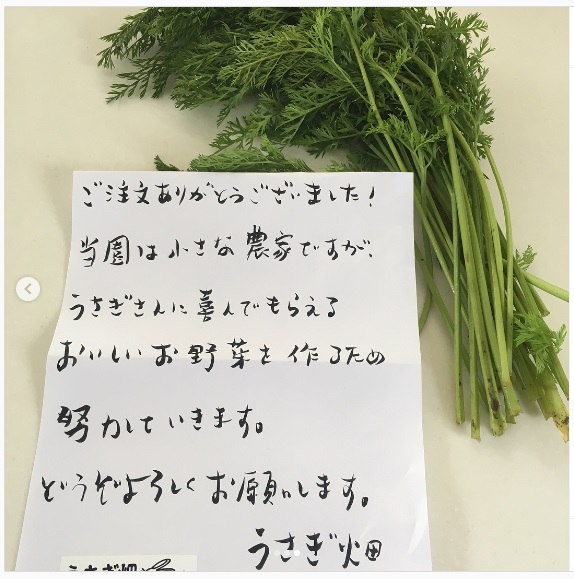 ご注文ありがとうございました!
当園は小さな農家ですが、
うさぎさんに喜んでもらえる
おいしいお野菜を作るため
努力していきます。
どうぞよろしくお願いします。
うさぎ畑
うさぎ畑